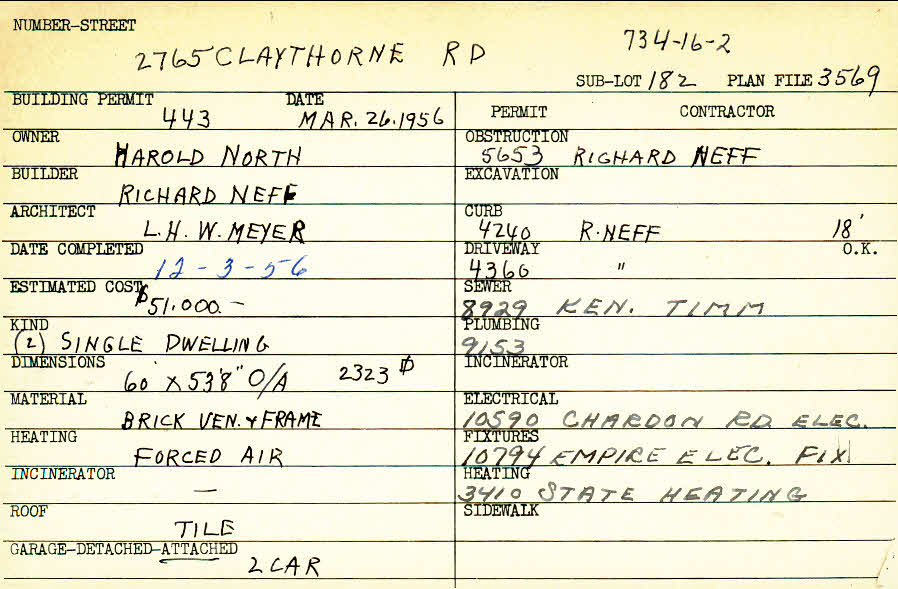 NUMBER-STREET
2765 CLAYTHORNE RD
734-16-2
SUB-LOT 182 PLAN FILE 3569
BUILDING PERMIT DATE
443 MAR. 26. 1956
OWNER
HAROLD NORTH
BUILDER
RICHARD NEFF
ARCHITECT
L.H. W. MEYER
DATE COMPLETED
12-3-56
ESTIMATED COST
$51.000.-
KIND
(2) SINGLE DWELLING
DIMENSIONS
60' X 53'8" O/A 2323 ⌀
MATERIAL
BRICK VEN. & FRAME
HEATING
FORCED AIR
INCINERATOR
—
ROOF
TILE
GARAGE-DETACHED-ATTACHED
2 CAR
PERMIT CONTRACTOR
OBSTRUCTION
5653 RICHARD NEFF
EXCAVATION
CURB
4240 R. NEFF 18'
DRIVEWAY O.K.
4360 "
SEWER
8929 KEN. TIMM
PLUMBING
9153
INCINERATOR
ELECTRICAL
10590 CHARDON RD. ELEC.
FIXTURES
10794 EMPIRE ELEC. FIX
HEATING
3410 STATE HEATING
SIDEWALK